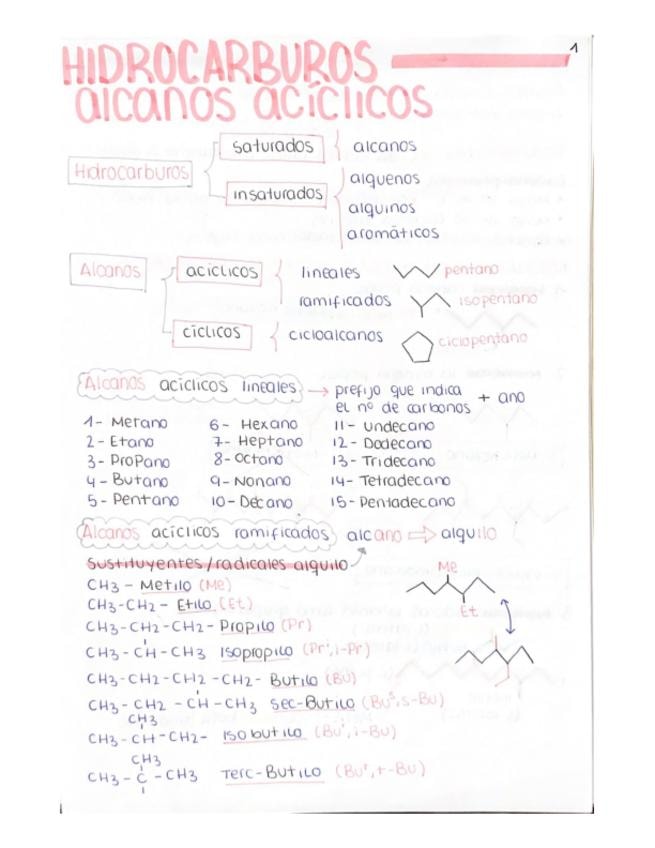 1
HIDROCARBUROS
alcanos acíclicos
Hidrocarburos
saturados
alcanos
insaturados
alquenos
alquinos
aromáticos
Alcanos
acíclicos
lineales
pentano
ramificados
isopentano
cíclicos
cicloalcanos
ciclopentano
Alcanos acíclicos lineales → prefijo que indica
el nº de carbonos + ano
1- Metano
2- Etano
3- Propano
4- Butano
5- Pentano
6- Hexano
7- Heptano
8- Octano
9- Nonano
10- Decano
11- Undecano
12- Dodecano
13- Tridecano
14- Tetradecano
15- Pentadecano
Alcanos acíclicos ramificados alcano ⇒ alquilo
Sustituyentes/radicales alquilo
CH3 - Metilo (Me)
CH3-CH2- Etilo (Et)
CH3-CH2-CH2- Propilo (Pr)
CH3-CH-CH3 Isopropilo (Prⁱ, i-Pr)
CH3-CH2-CH2-CH2- Butilo (Bu)
CH3-CH2-CH-CH3 sec-Butilo (Buˢ, s-Bu)
CH3
CH3-CH-CH2- Isobutilo (Buⁱ, i-Bu)
CH3
CH3-C-CH3 Terc-Butilo (Buᵗ, t-Bu)
Me
Et